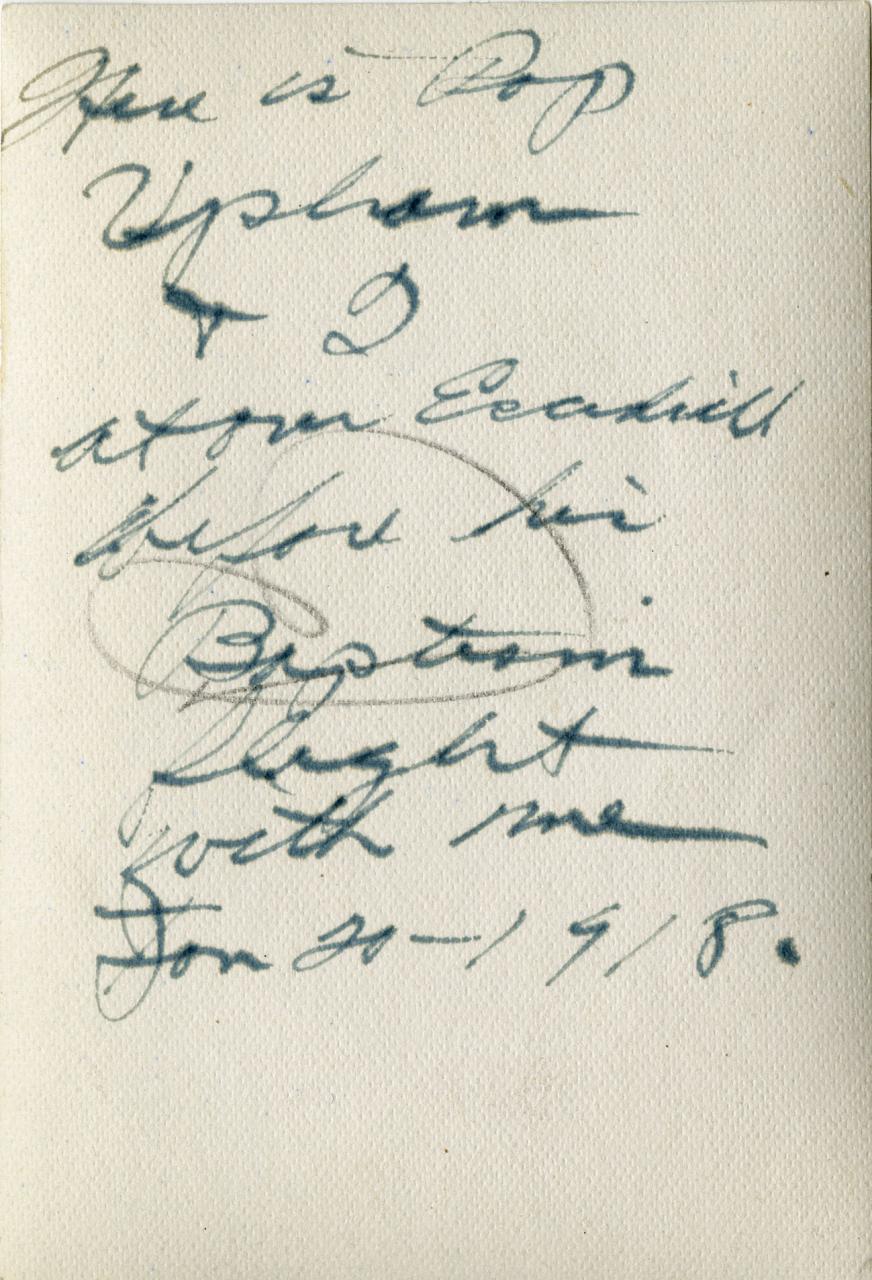 Here is Pop
Upham
& I
at our Escadrill
before his
Baptism
flight
with me
Jan 20-1918.